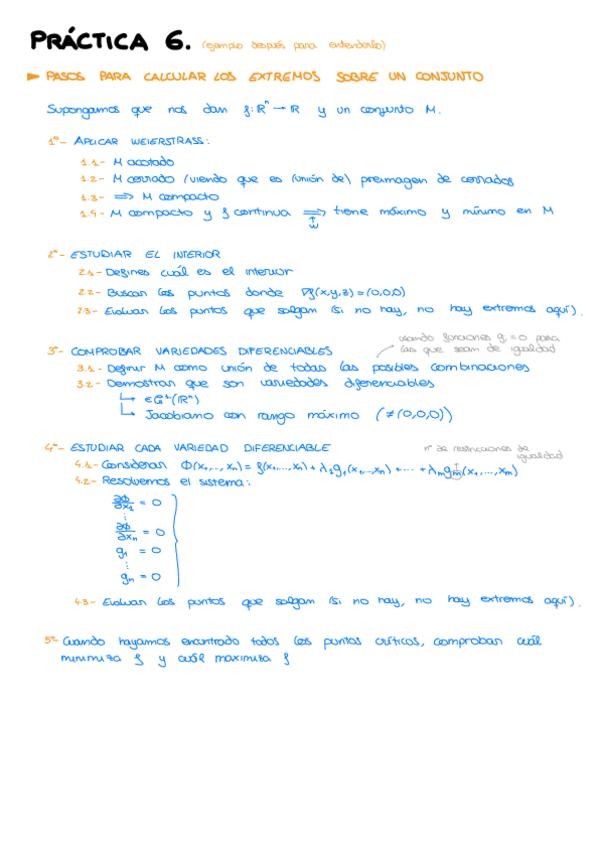 PRÁCTICA 6. (ejemplo después para entenderlo)
► PASOS PARA CALCULAR LOS EXTREMOS SOBRE UN CONJUNTO
Supongamos que nos dan f: ℝⁿ → ℝ y un conjunto M.
1º- APLICAR WEIERSTRASS:
1.1- M acotado
1.2- M cerrado (viendo que es (unión de) preimagen de cerrados
1.3- ⟹ M compacto
1.4- M compacto y f continua ⟹ tiene máximo y mínimo en M
↑
W
2º- ESTUDIAR EL INTERIOR
2.1- Defines cuál es el interior
2.2- Buscar los puntos donde ∇f(x,y,z) = (0,0,0)
2.3- Evaluar los puntos que salgan (si no hay, no hay extremos aquí).
usando funciones gᵢ = 0 para
las que sean de igualdad
3º- COMPROBAR VARIEDADES DIFERENCIABLES
3.1- Definir M como unión de todas las posibles combinaciones
3.2- Demostrar que son variedades diferenciables
↳ ∈ C¹(ℝⁿ)
↳ Jacobiano con rango máximo (≠(0,0,0))
4º- ESTUDIAR CADA VARIEDAD DIFERENCIABLE
nº de restricciones de
igualdad
4.1- Considerar Φ(x₁,...,xₙ) = f(x₁,...,xₙ) + λ₁g₁(x₁,...,xₙ) + ... + λₘgₘ(x₁,...,xₙ)
4.2- Resolvemos el sistema:
∂Φ/∂x₁ = 0
⋮
∂Φ/∂xₙ = 0
g₁ = 0
⋮
gₘ = 0
4.3- Evaluar los puntos que salgan (si no hay, no hay extremos aquí).
5º- Cuando hayamos encontrado todos los puntos críticos, comprobar cuál
minimiza f y cuál maximiza f